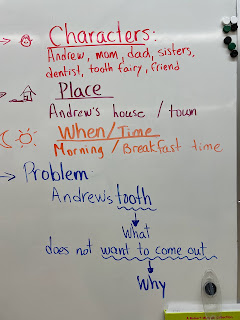 Characters:
Andrew, mom, dad, sisters,
dentist, tooth fairy, friend
Place
Andrew's house / town
When/Time
Morning / Breakfast time
Problem
Andrew's tooth
What
does not want to come out
Why